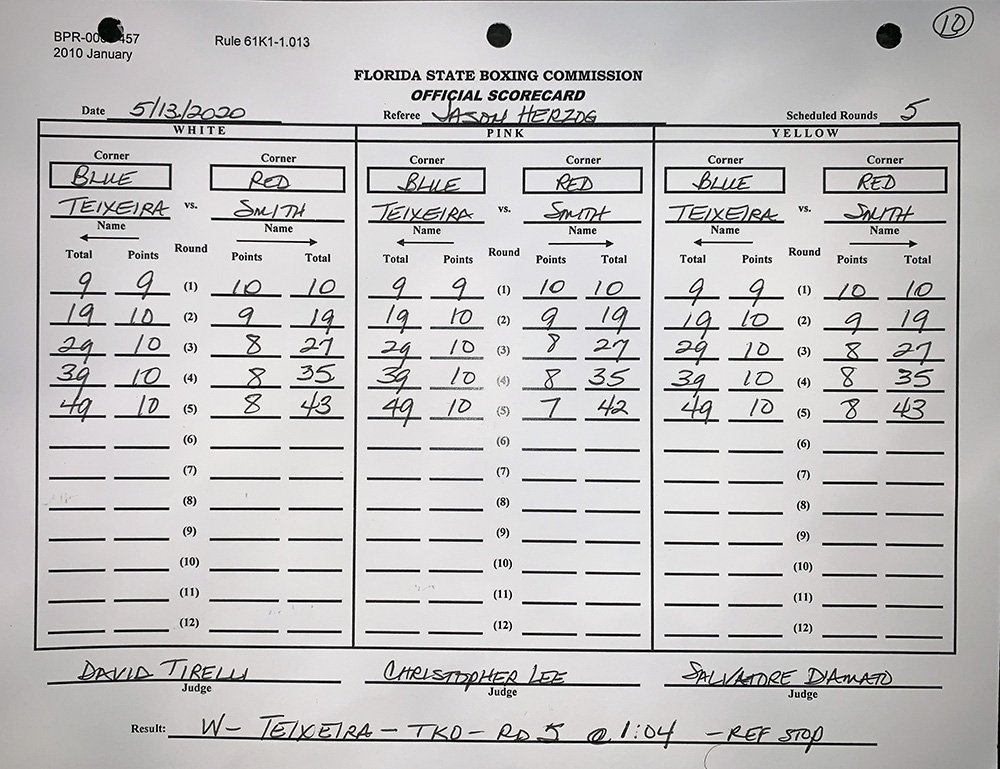 10
BPR-00 457
2010 January
Rule 61K1-1.013
FLORIDA STATE BOXING COMMISSION
OFFICIAL SCORECARD
Date 5/13/2020 Referee JASON HERZOG Scheduled Rounds 5
WHITE PINK YELLOW
Corner Corner Corner Corner Corner Corner
BLUE RED BLUE RED BLUE RED
TEIXEIRA vs. SMITH TEIXEIRA vs. SMITH TEIXEIRA vs. SMITH
Name Name Name Name Name Name
Total Points Round Points Total Total Points Round Points Total Total Points Round Points Total
9 9 (1) 10 10 9 9 (1) 10 10 9 9 (1) 10 10
19 10 (2) 9 19 19 10 (2) 9 19 19 10 (2) 9 19
29 10 (3) 8 27 29 10 (3) 8 27 29 10 (3) 8 27
39 10 (4) 8 35 39 10 (4) 8 35 39 10 (4) 8 35
49 10 (5) 8 43 49 10 (5) 7 42 49 10 (5) 8 43
(6) (6) (6)
(7) (7) (7)
(8) (8) (8)
(9) (9) (9)
(10) (10) (10)
(11) (11) (11)
(12) (12) (12)
DAVID TIRELLI CHRISTOPHER LEE SALVATORE D'AMATO
Judge Judge Judge
Result: W- TEIXEIRA - TKO - RD 5 @ 1:04 - REF STOP